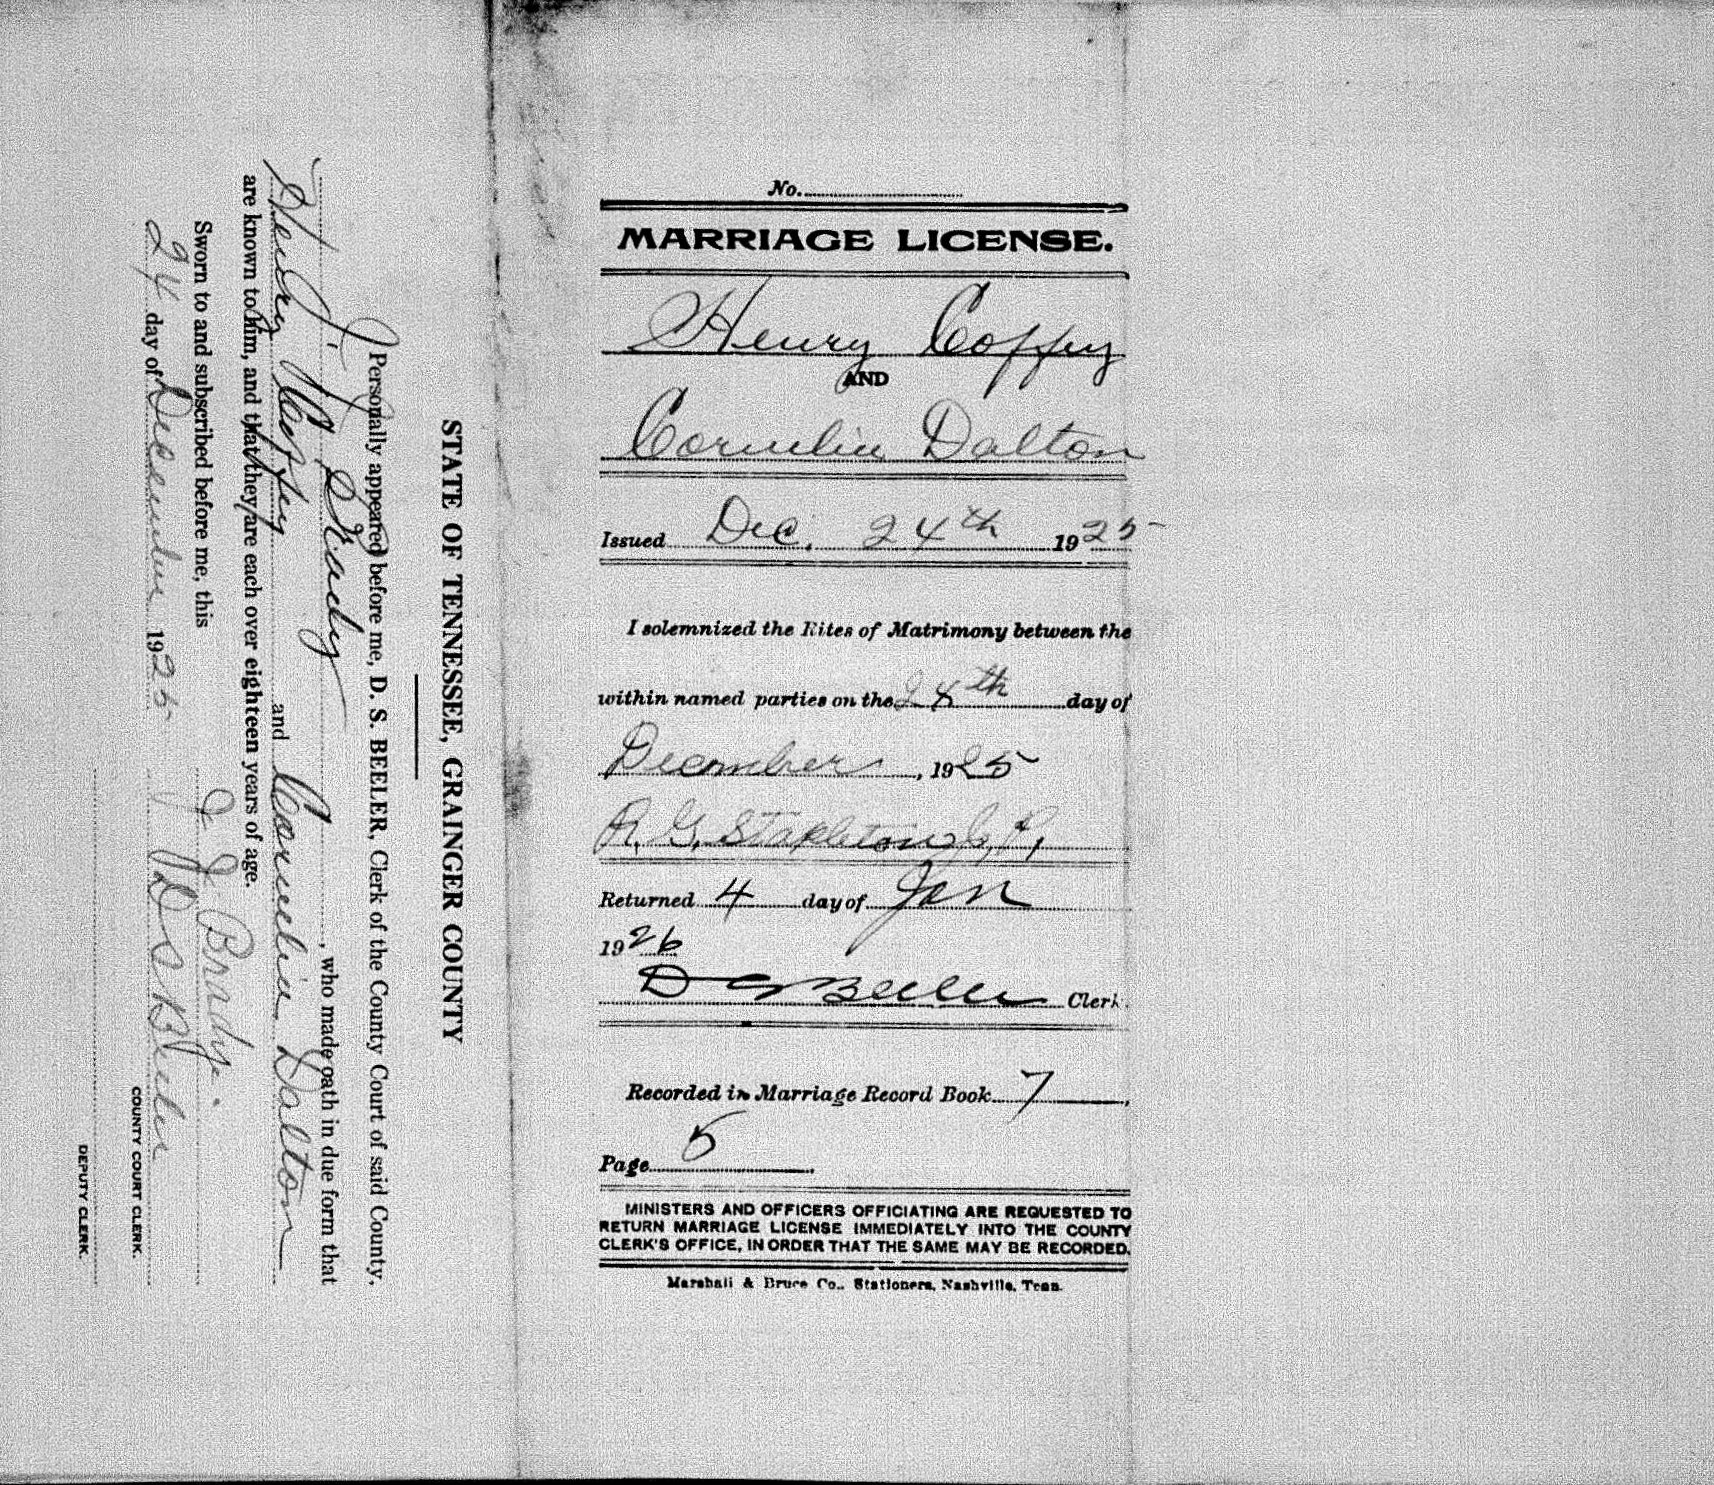 No.
MARRIAGE LICENSE.
Henry Coffey
AND
Cornelia Dalton
Issued Dec. 24th 1925
I solemnized the Rites of Matrimony between the
within named parties on the 24th day of
December, 1925
R. G. Stapleton J. P.
Returned 4 day of Jan
1926
D S Beeler Clerk.
Recorded in Marriage Record Book 7,
Page 5.
MINISTERS AND OFFICERS OFFICIATING ARE REQUESTED TO
RETURN MARRIAGE LICENSE IMMEDIATELY INTO THE COUNTY
CLERK'S OFFICE, IN ORDER THAT THE SAME MAY BE RECORDED.
Marshall & Bruce Co., Stationers, Nashville, Tenn.
STATE OF TENNESSEE, GRAINGER COUNTY
Personally appeared before me, D. S. BEELER, Clerk of the County Court of said County,
J. J. Brady, who made oath in due form that
Henry Coffey and Cornelia Dalton
are known to him, and that they are each over eighteen years of age.
Sworn to and subscribed before me, this
24 day of December 1925
J. J. Brady.
D S Beeler
COUNTY COURT CLERK.
DEPUTY CLERK.